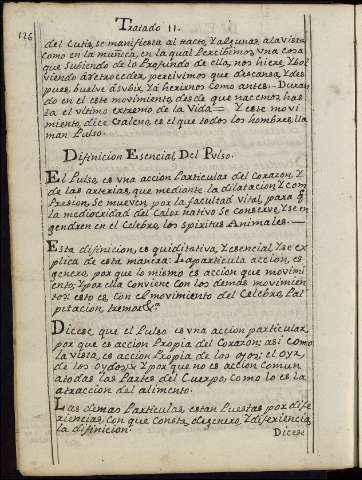 126
Tratado 11.
del Cutis, se manifiesta al tacto, Y algunas a la vista
como en la muñeca, en la qual Percibimos, vna cosa
que Subiendo de lo Profundo de ella, nos hiere, Y bol
viendo à retroceder, percivimos que descansa, Y des
pues, buelve à subir, Ya herirnos como antes. Duran
do en el este movimiento, desde que nacemos, has
ta el vltimo extremo de la Vida = Y este movi
miento, dice Galeno, es el que todos los hombres, lla
man Pulso.
Difinicion Esencial Del Pulso.
El Pulso, es vna accion Particular del Corazon, Y
de las arterias, que mediante la dilatacion Y com
Presion, Se mueven por la facultad vital, para q.
la mediocridad del Calor nativo Se conserve, Y se en
gendren en el Celebro, los spiritus Animales.
Esta difinicion, es quiditativa, Y esencial, Y se ex
plica de esta manera: La particula accion, es
genero, por que lo mismo es accion que movimi
ento, Y por ella conviene con los demas movimien
tos: esto es, con el movimiento del Celebro, Pal
pitacion, tremor &ª
Dicese, que el Pulso es vna accion particular,
por que es accion Propia del Corazon; asi como
la vista, es accion Propia de los ojos; el oyr,
de los oydos &. Y por que no es accion comun
a todas las Partes del Cuerpo, como lo es la
atraccion del alimento.
Las demas Particulas, estan Puestas por dife
riencias, con que consta de genero, Y diferiencia,
la difinicion.
Dicese